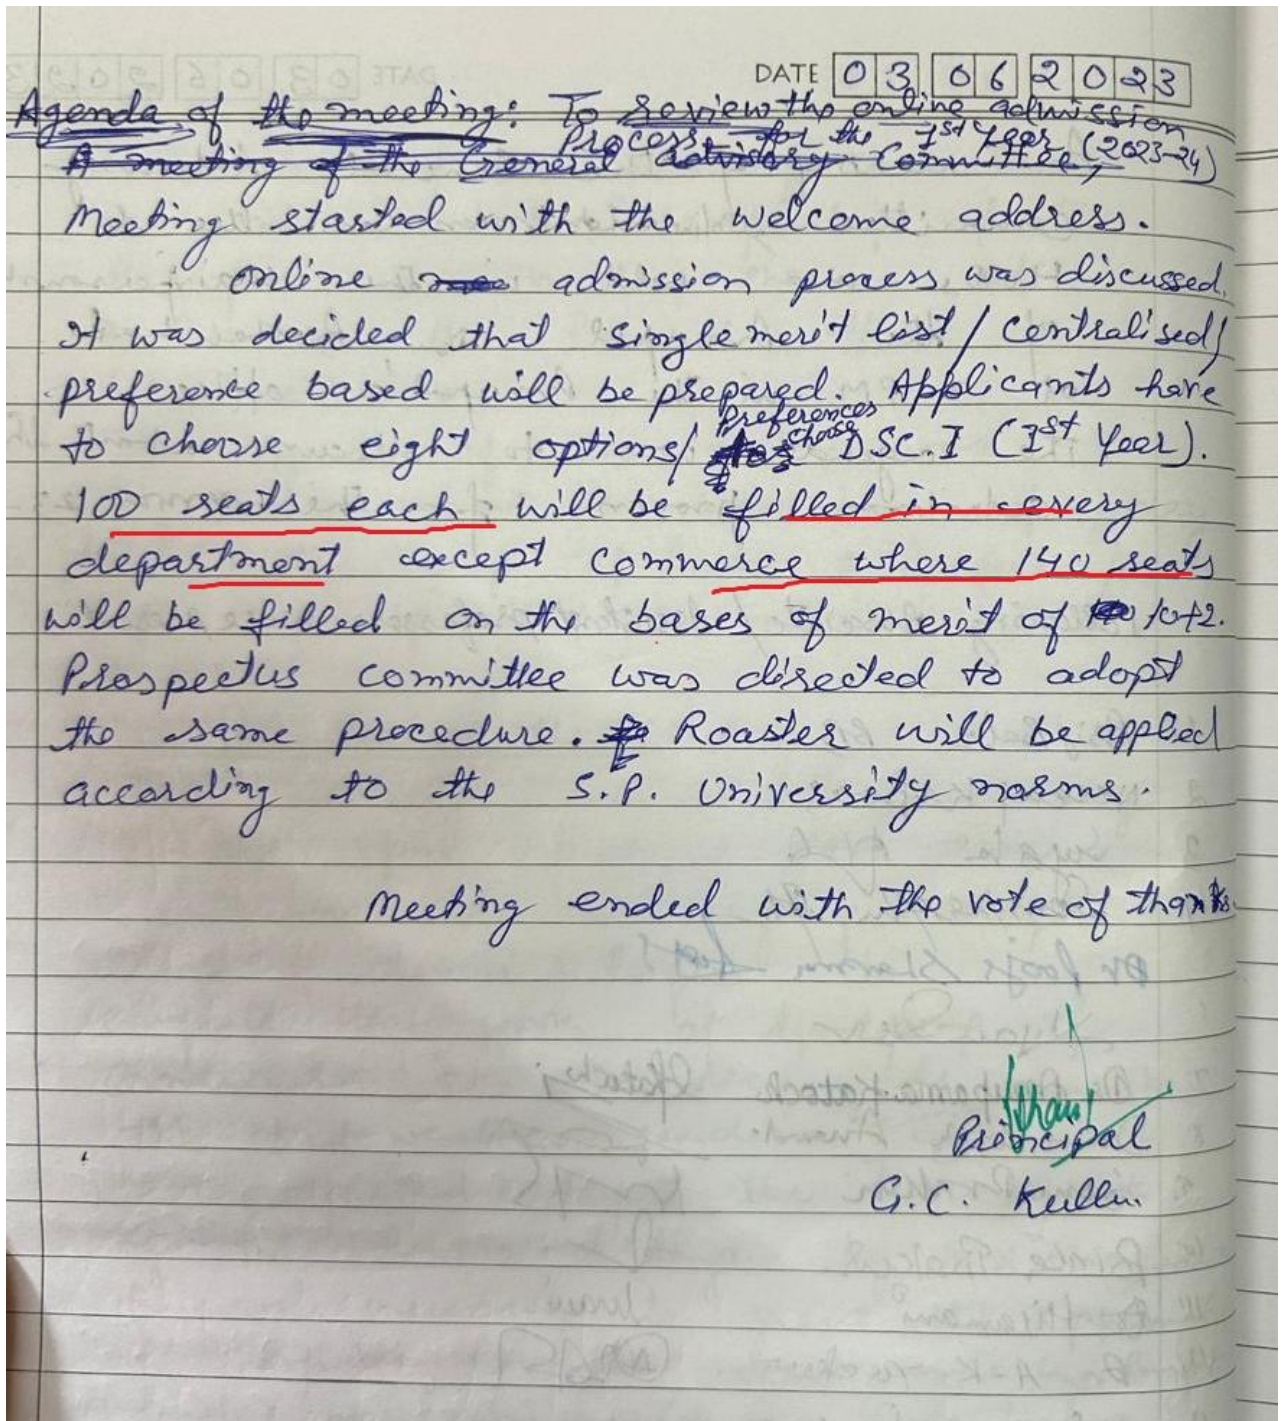 DATE 03 06 2023
Agenda of the meeting: To review the online admission
Process for the 1st Year (2023-24)
A meeting of the General Advisory Committee,
Meeting started with the welcome address.
Online admission process was discussed.
It was decided that single merit list / centralised/
preference based will be prepared. Applicants have
Preferences
to choose eight options/ choose DSC.I (1st Year).
100 seats each will be filled in every
department except Commerce where 140 seats
will be filled on the bases of merit of 10+2.
Prospectus committee was directed to adopt
the same procedure. Roaster will be applied
according to the S.P. University norms.
Meeting ended with the vote of thanks.
Principal
G.C. Kullu.